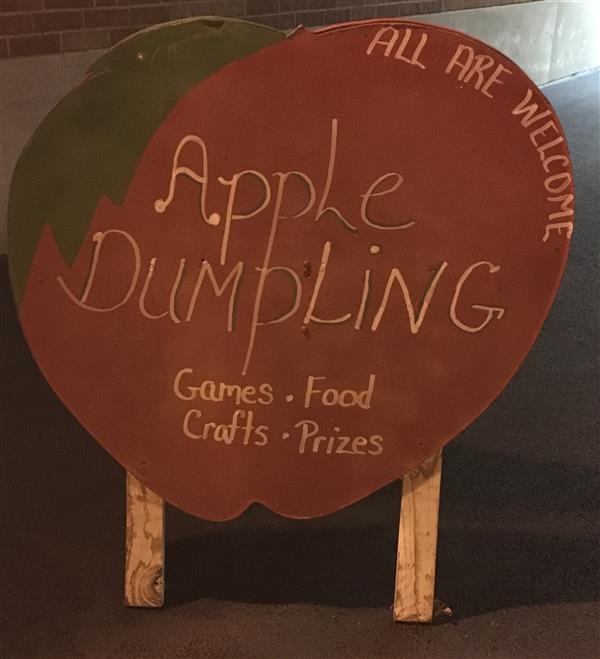 ALL ARE WELCOME
Apple
DUMPLiNG
Games · Food
Crafts · Prizes